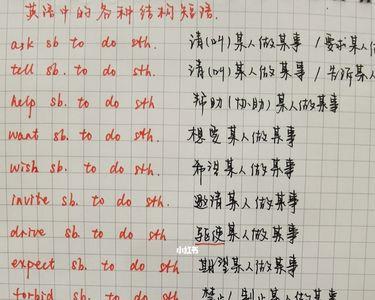 英语中的各种结构短语.
ask sb to do sth. 请(叫)某人做某事 / 要求某人
tell sb. to do sth. 请(叫)某人做某事 / 告诉某人
help sb. to do sth. 帮助(协助)某人做某事
want sb. to do sth. 想要某人做某事
wish sb. to do sth. 希望某人做某事
invite sb. to do sth. 邀请某人做某事
drive sb. to do sth 驱使某人做某事
小红书
expect sb. to do sth 期望某人做某事
forbid sb. to do sth 禁止/制止某人做某事